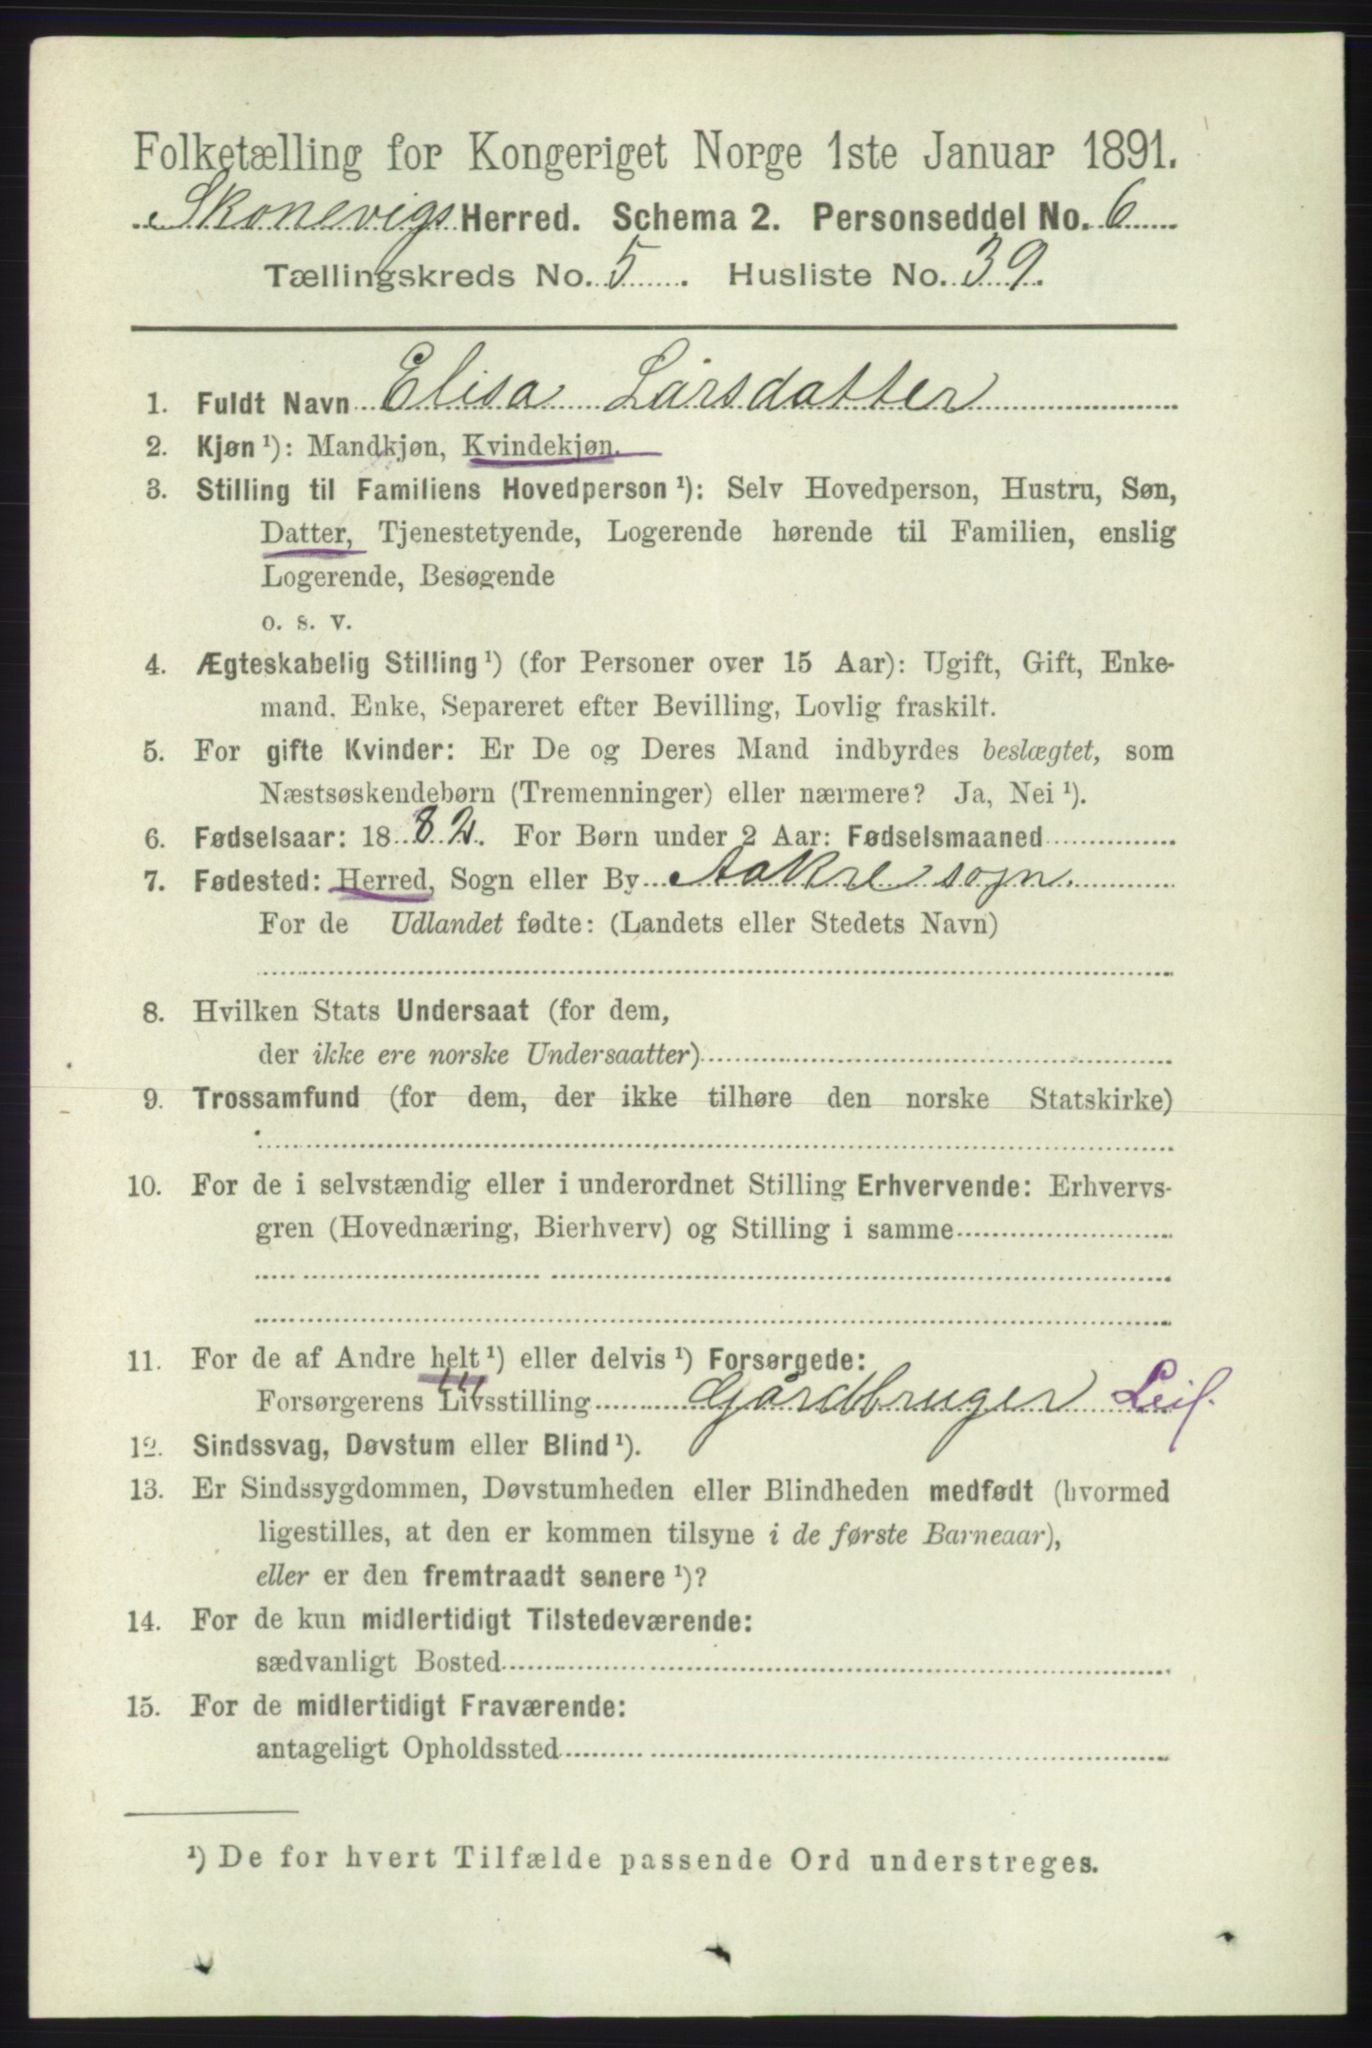 Folketælling for Kongeriget Norge 1ste Januar 1891.
Skonevigs Herred. Schema 2. Personseddel No. 6
Tællingskreds No. 5. Husliste No. 39.
1. Fuldt Navn Elisa Larsdatter
2. Kjøn ¹): Mandkjøn, Kvindekjøn.
3. Stilling til Familiens Hovedperson ¹): Selv Hovedperson, Hustru, Søn,
Datter, Tjenestetyende, Logerende hørende til Familien, enslig
Logerende, Besøgende
o. s. v.
4. Ægteskabelig Stilling ¹) (for Personer over 15 Aar): Ugift, Gift, Enke-
mand. Enke, Separeret efter Bevilling, Lovlig fraskilt.
5. For gifte Kvinder: Er De og Deres Mand indbyrdes beslægtet, som
Næstsøskendebørn (Tremenninger) eller nærmere? Ja, Nei ¹).
6. Fødselsaar: 1882. For Børn under 2 Aar: Fødselsmaaned
7. Fødested: Herred, Sogn eller By Aakre sogn.
For de Udlandet fødte: (Landets eller Stedets Navn)
8. Hvilken Stats Undersaat (for dem,
der ikke ere norske Undersaatter)
9. Trossamfund (for dem, der ikke tilhøre den norske Statskirke)
10. For de i selvstændig eller i underordnet Stilling Erhvervende: Erhvervs-
gren (Hovednæring, Bierhverv) og Stilling i samme
11. For de af Andre helt ¹) eller delvis ¹) Forsørgede:
Forsørgerens Livsstilling Gårdbruger Leil.
12. Sindssvag, Døvstum eller Blind ¹).
13. Er Sindssygdommen, Døvstumheden eller Blindheden medfødt (hvormed
ligestilles, at den er kommen tilsyne i de første Barneaar),
eller er den fremtraadt senere ¹)?
14. For de kun midlertidigt Tilstedeværende:
sædvanligt Bosted
15. For de midlertidigt Fraværende:
antageligt Opholdssted
¹) De for hvert Tilfælde passende Ord understreges.